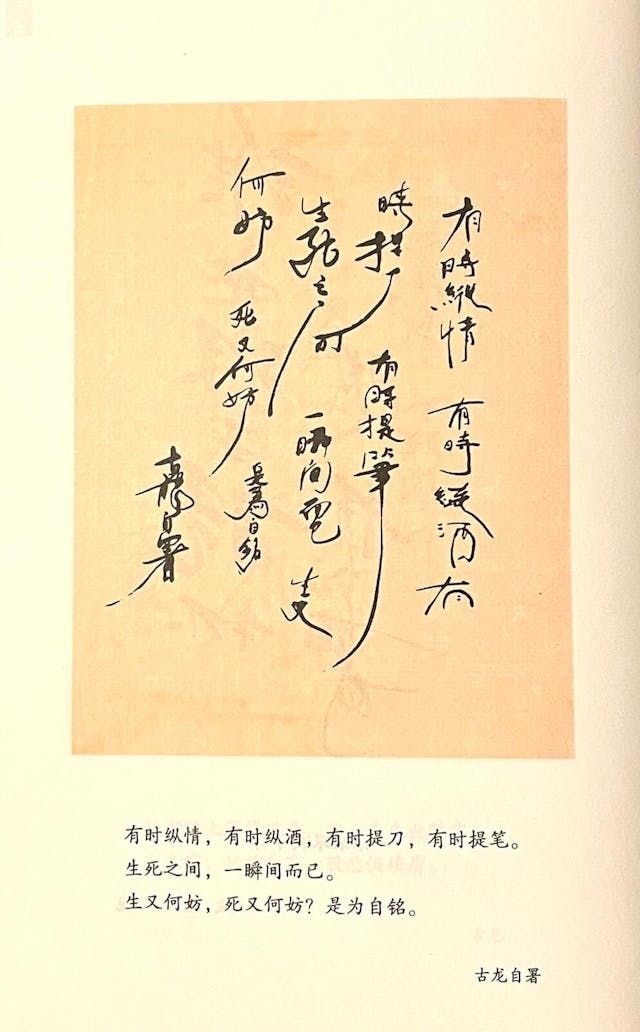 有時縱情 有時縱酒 有
時提刀 有時提筆
生死之间 一瞬间而已 生又
何妨 死又何妨
是為自銘
古龍自署
有时纵情，有时纵酒，有时提刀，有时提笔。
生死之间，一瞬间而已。
生又何妨，死又何妨？是为自铭。
古龙自署